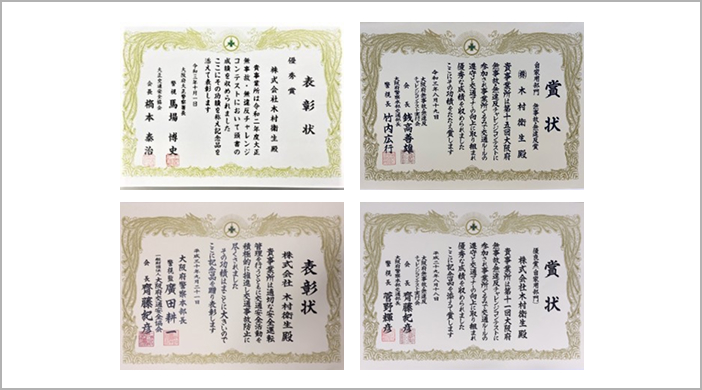 表彰状
優秀賞
株式会社木村衛生殿
貴事業所は令和二年度大正
無事故・無違反チャレンジ
コンテストにおいて頭書の
成績を収められました
ここにその功績を称え記念品を
添えて表彰します
令和三年十月一日
大阪府大正警察署長
警視 馬場博史
大正交通安全協会
会長 橋本泰治
賞状
自家用部門 無事故・無違反賞
㈱木村衛生殿
貴事業所は第十五回大阪府
無事故・無違反チャレンジコンテストに
参加され事業所ぐるみで交通ルールの
遵守と交通マナーの向上に取り組まれ
優秀な成績を収められました
令和三年八月十九日
会長 銭高善雄
大阪府警察本部交通部長
警視長 竹内広行
表彰状
株式会社 木村衛生殿
貴事業所は適切な安全運転
管理を行うとともに交通安全活動を
積極的に推進し交通事故防止に
尽くされました
その功績はまことに大きいので
ここに記念品を贈り表彰します
平成三十年九月二十一日
大阪府警察本部長
警視監 廣田耕一
一般財団法人大阪府交通安全協会
会長 齊藤紀彦
賞状
優良賞(自家用部門)
株式会社木村衛生殿
貴事業所は第十一回大阪府
無事故・無違反チャレンジコンテストに
参加され事業所ぐるみで交通ルールの
遵守と交通マナーの向上に取り組まれ
優秀な成績を収められました
ここに記念品を添え賞します
平成二十九年八月十八日
会長 齊藤紀彦
大阪府警察本部交通部長
警視長 菅野輝彦